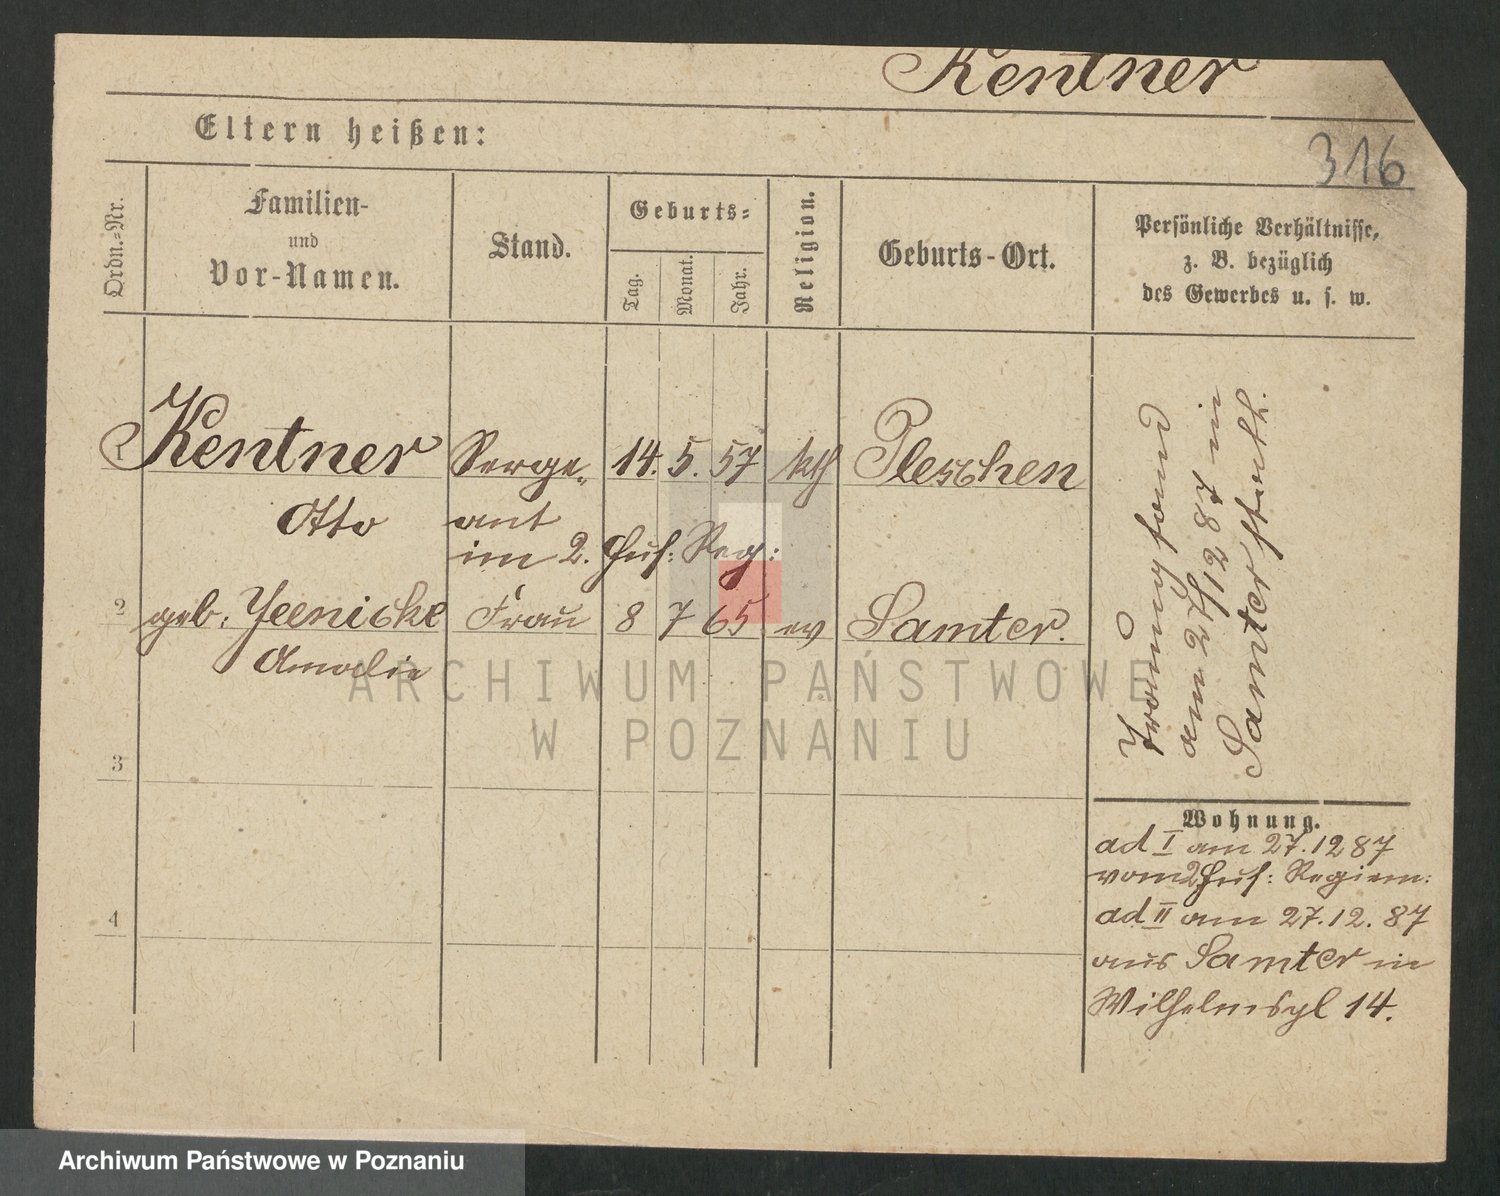 Kentner
316
Eltern heißen:
Ordn.-Nr.
Familien-
und
Vor-Namen.
Stand.
Geburts-
Tag.
Monat.
Jahr.
Religion.
Geburts-Ort.
Persönliche Verhältnisse,
z. B. bezüglich
des Gewerbes u. s. w.
1 Kentner Serge- 14. 5. 57 kth Pleschen
Otto ant
im 2. Hus: Reg:
2 geb: Jeenicke Frau 8 7 65 ev Samter.
Amalie
3
4
Trauung fand
am 27/12 87 in
Samter statt.
Wohnung.
ad I am 27.12 87
vom 2 Hus: Regiem:
ad II am 27.12. 87
aus Samter in
Wilhelmspl 14.
ARCHIWUM PAŃSTWOWE
W POZNANIU
Archiwum Państwowe w Poznaniu